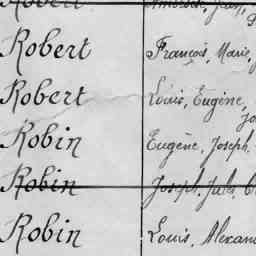 Robert
Robert François, Marie,
Robert Louis, Eugène,
Robin Eugène, Joseph.
Robin Joseph, Jules,
Robin Louis,